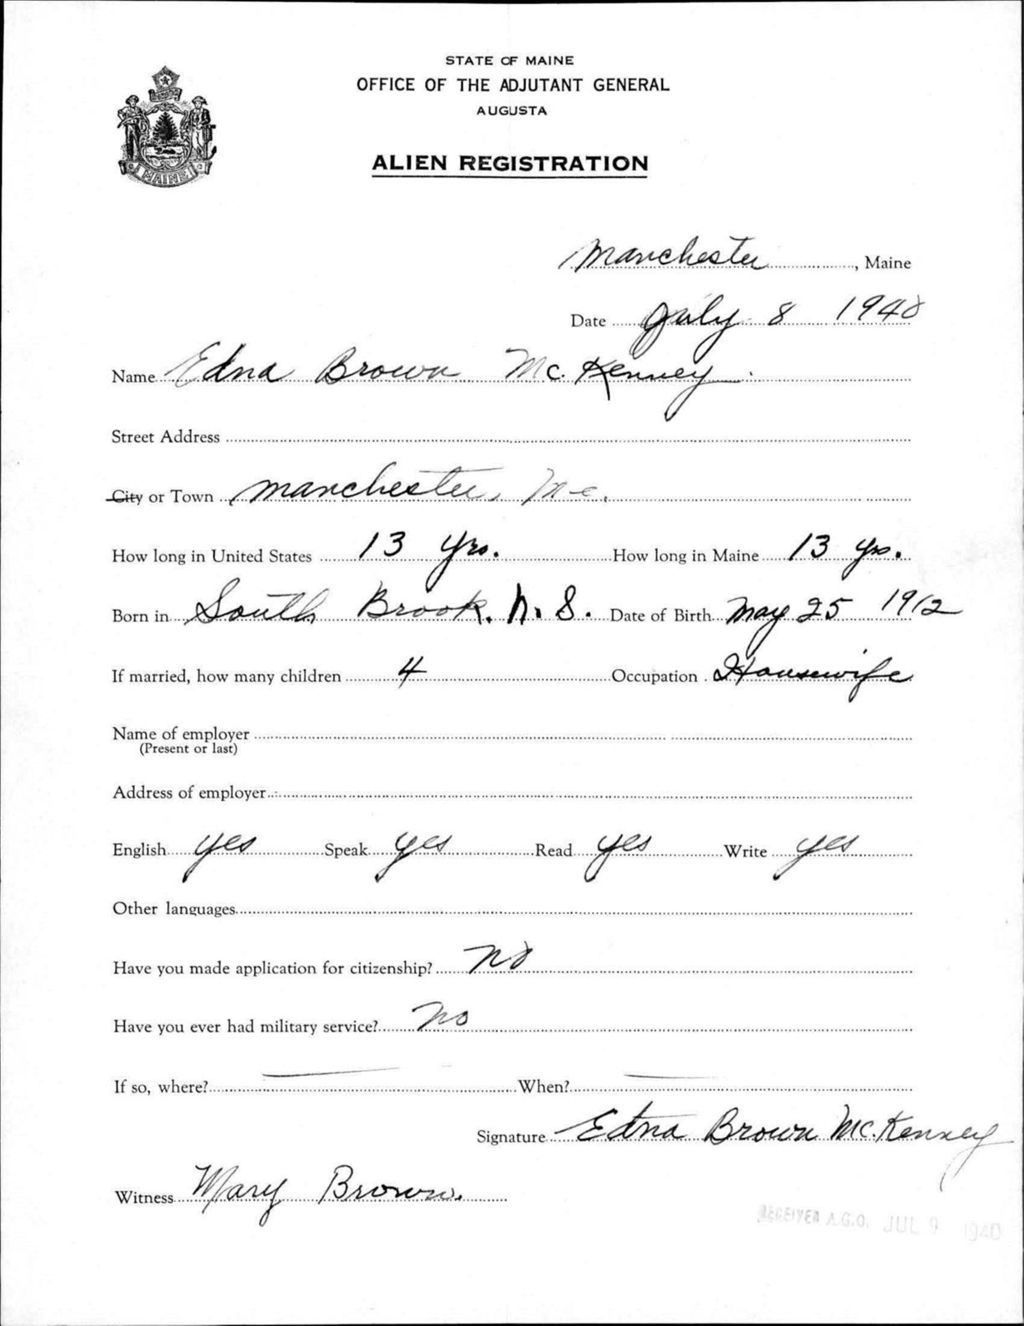 STATE OF MAINE
OFFICE OF THE ADJUTANT GENERAL
AUGUSTA
ALIEN REGISTRATION
MAINE
Manchester, Maine
Date July 8 1940
Name Edna Brown Mc.Kenney
Street Address
City or Town Manchester, Me.
How long in United States 13 yrs. How long in Maine 13 yrs.
Born in South Brook, N.S. Date of Birth May 25 1912
If married, how many children 4 Occupation Housewife
Name of employer
(Present or last)
Address of employer
English yes Speak yes Read yes Write yes
Other languages
Have you made application for citizenship? No
Have you ever had military service? No
If so, where? When?
Signature Edna Brown Mc.Kenney
Witness Mary Brown.
RECEIVED A.G.O. JUL 9 1940